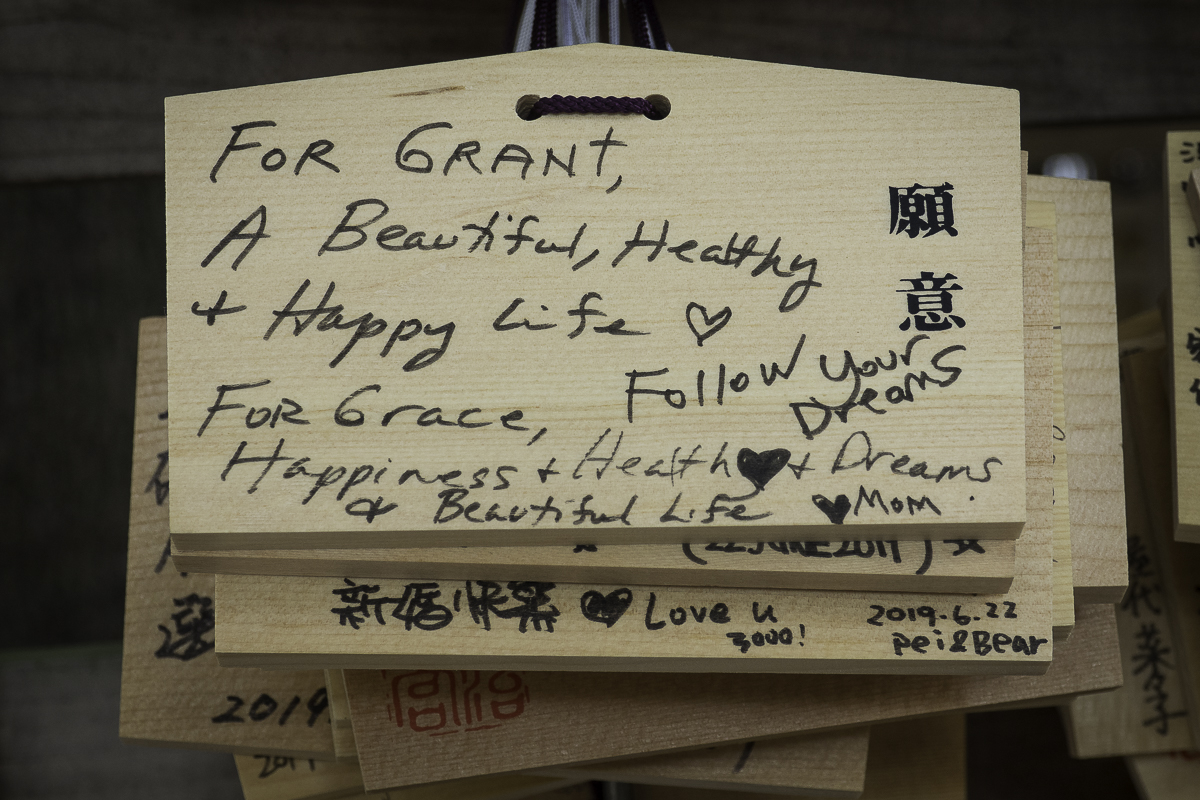 FOR GRANT,
A Beautiful, Healthy
+ Happy Life ♡
願意
Follow your
Dreams
FOR Grace,
Happiness + Health ♥ + Dreams
& Beautiful Life ♥ Mom.
(22 JUNE 2019) ☆
新婚快樂 ♥ Love u
3000!
2019.6.22
Pei & Bear
2019.
2019
代菜子